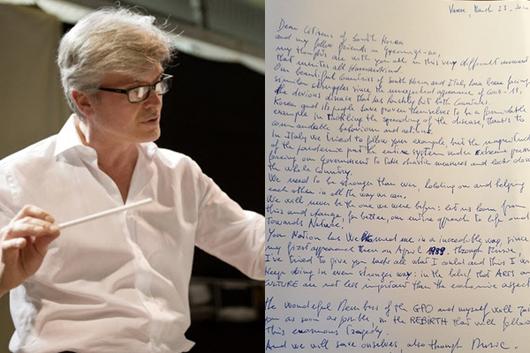 Varese, March 23, 20
Dear Citizens of South Korea
and my fellow friends in Gyeonggi-do,
my thoughts are with you all in this very difficult moment
that unites all Humankind.
Our beautiful Countries of South Korea and Italy has been facing
similar struggles since the unexpected appearance of Covid-19,
the devious disease that has harshly hit both Countries.
Korea and its people have proven themselves to be a formidable
example in tackling the spreading of the disease, thanks to
commendable behaviour and actions.
In Italy we tried to follow your example, but the magnitude
of the pandemic put the entire system under extreme pressure
forcing our Government to take drastic measures and lock down
the whole Country.
We need to be stronger than ever, holding on and helping
each other in all the way we can.
We will never be the one we were before: let us learn from
this and change, for better, our entire approach to life and
towards Nature.
Your Nation has welcomed me in a incredible way, since
my first appearance there on April 1989, through Music.
I've tried to give you back all what I could and this I will
keep doing in even stronger way: in the belief that ARTS and
CULTURE are not less important than the economic aspect
the wonderful Members of the GPO and myself will
you as soon as possible, in the REBIRTH that will follow
this enormous Tragedy.
And we will save ourselves, also through Music.